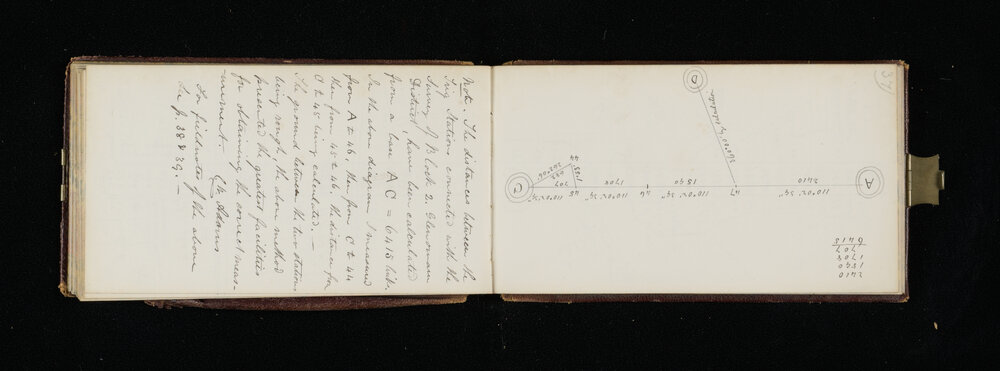 Note. The distances between the
Trig Stations connected with the
Survey of Block 2. Glenomaru
District, have been calculated
from a base A C = 6413 links.
In the above diagram I measured
from A to 46, then from C to 44
then from 45 to 46. the distance for
C to 45 being calculated. —
The ground between the two stations
being rough, the above method
presented the greatest facilities
for obtaining the correct meas-
urement.
C. W. Adams
For fieldnotes of the above
See p. 38 & 39. —
37
D
A
2410
110° 02' 29"
47
1590
110° 02' 29"
46
1708
110° 02' 29"
45
707
110° 02' 29"
C
44
2410
1590
1708
707
6415